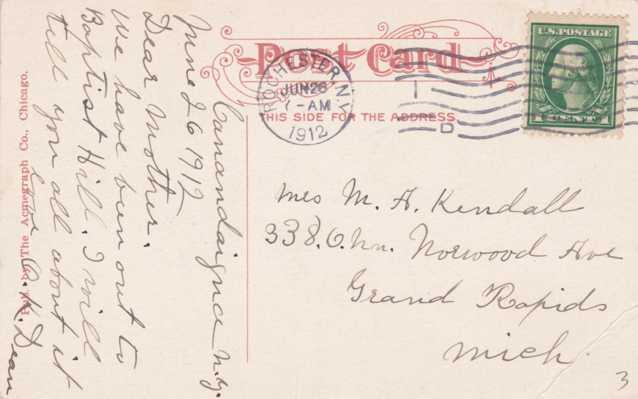 Post Card
THIS SIDE FOR THE ADDRESS
ROCHESTER, N.Y.
JUN 26
-AM
1912
1
D
U.S. POSTAGE
1 CENT 1
Canandaigua N.Y.
June 26 1912
Dear Mother.
We have been out to
Baptist Hill. I will
tell you all about it
love
Dean
Mrs M. A. Kendall
338. O. Nn. Norwood Ave
Grand Rapids
Mich.
3
Pub. by The Acmegraph Co., Chicago.